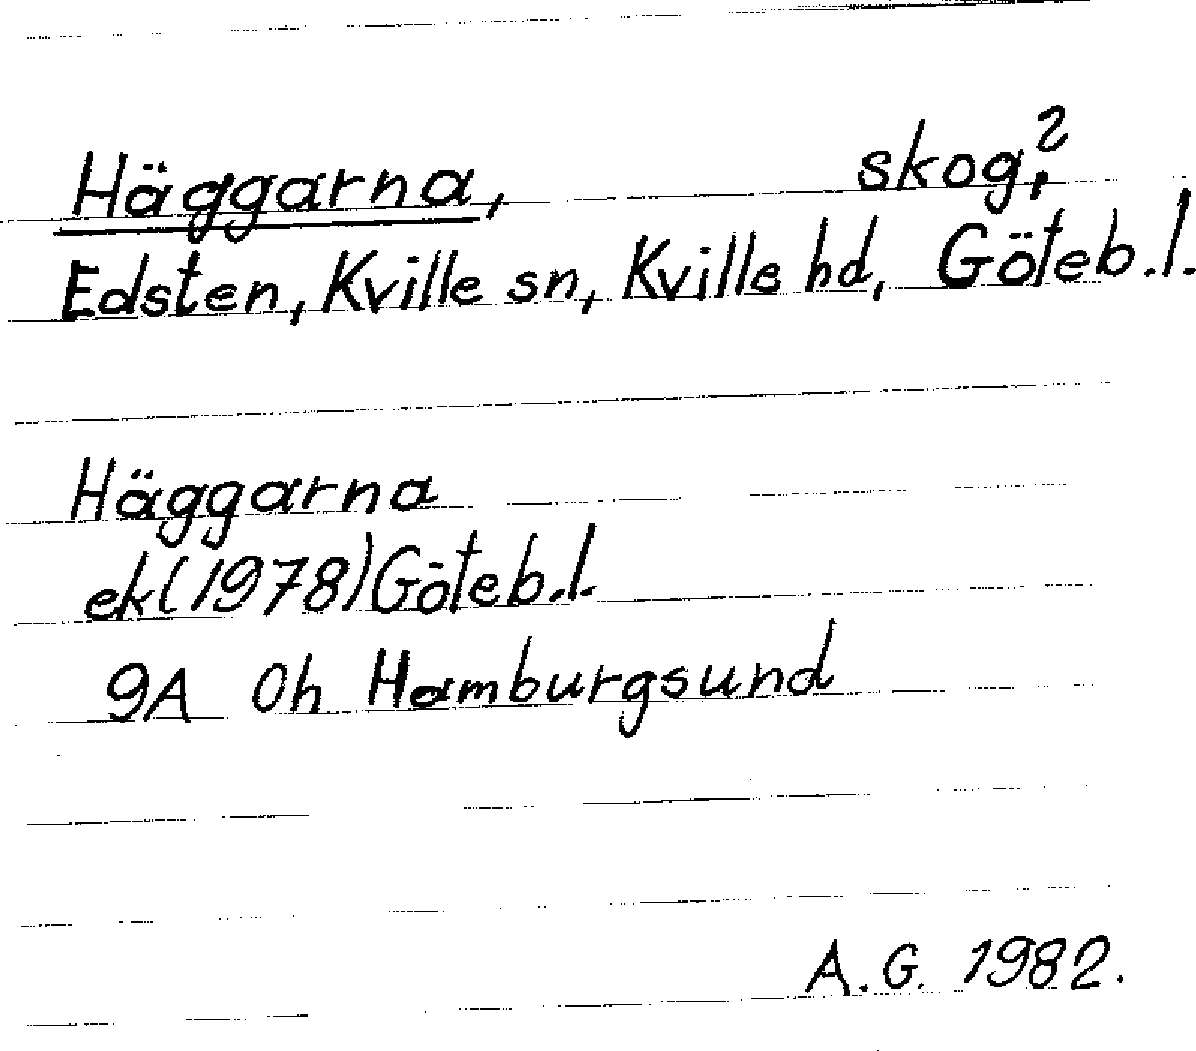 Häggarna, skog,?
Edsten, Kville sn, Kville hd, Göteb.l.
Häggarna
ek(1978)Göteb.l.
9A 0h Hamburgsund
A.G. 1982.